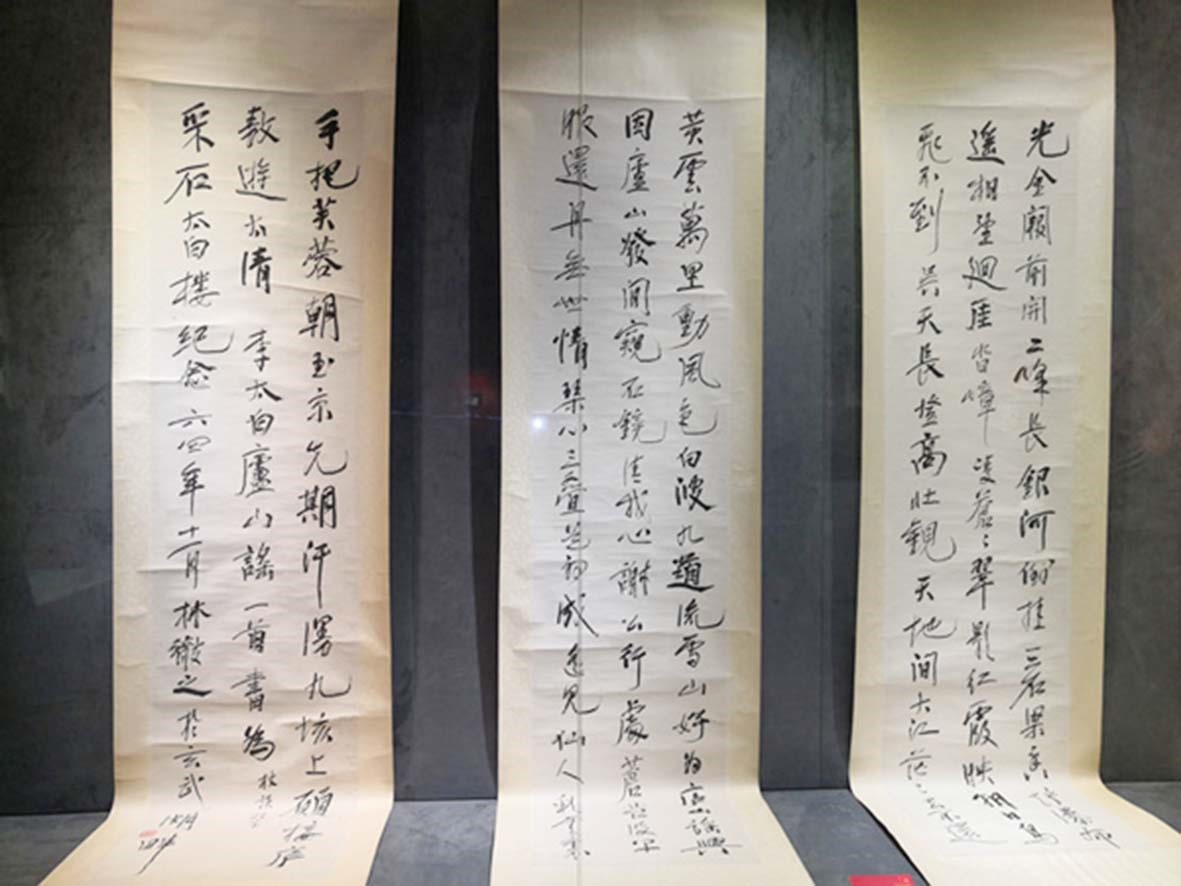 光金闕前開二峰長銀河倒挂三石梁香炉瀑布
遙相望迴崖沓嶂凌蒼〻翠影紅霞映朝日鳥
飛不到吳天長登高壯觀天地間大江茫〻去不還
黃雲萬里動風色白波九道流雪山好為廬謠興
因廬山發閒窺石鏡清我心謝公行處蒼苔沒早
服還丹無世情琴心三疊道初成遙見仙人彩雲裏
手把芙蓉朝玉京先期汗漫九垓上願接盧
敖遊太清 李太白廬山謠一首書為
采石太白樓紀念 六四年十一月林散之於玄武湖畔